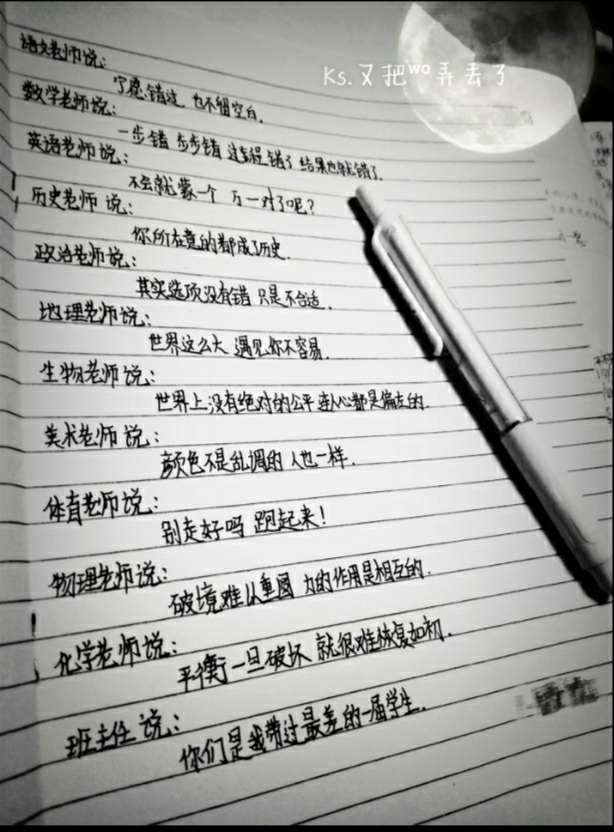 Ks.又把wo弄丢了
语文老师说:
宁愿错过 也不留空白.
数学老师说:
一步错 步步错 过程错了 结果也就错了.
英语老师说:
不会就蒙一个 万一对了呢?
历史老师 说:
你所在意的都成了历史.
政治老师说:
其实选项没有错 只是不合适.
地理老师说:
世界这么大 遇见你不容易.
生物老师说:
世界上没有绝对的公平 连心都是偏左的.
美术老师 说:
颜色不是乱调的 人也一样.
体育老师说:
别走好吗 跑起来!
物理老师说:
破境难以重圆 力的作用是相互的.
化学老师说:
平衡一旦破坏 就很难恢复如初.
班主任 说:
你们是我带过最差的一届学生.